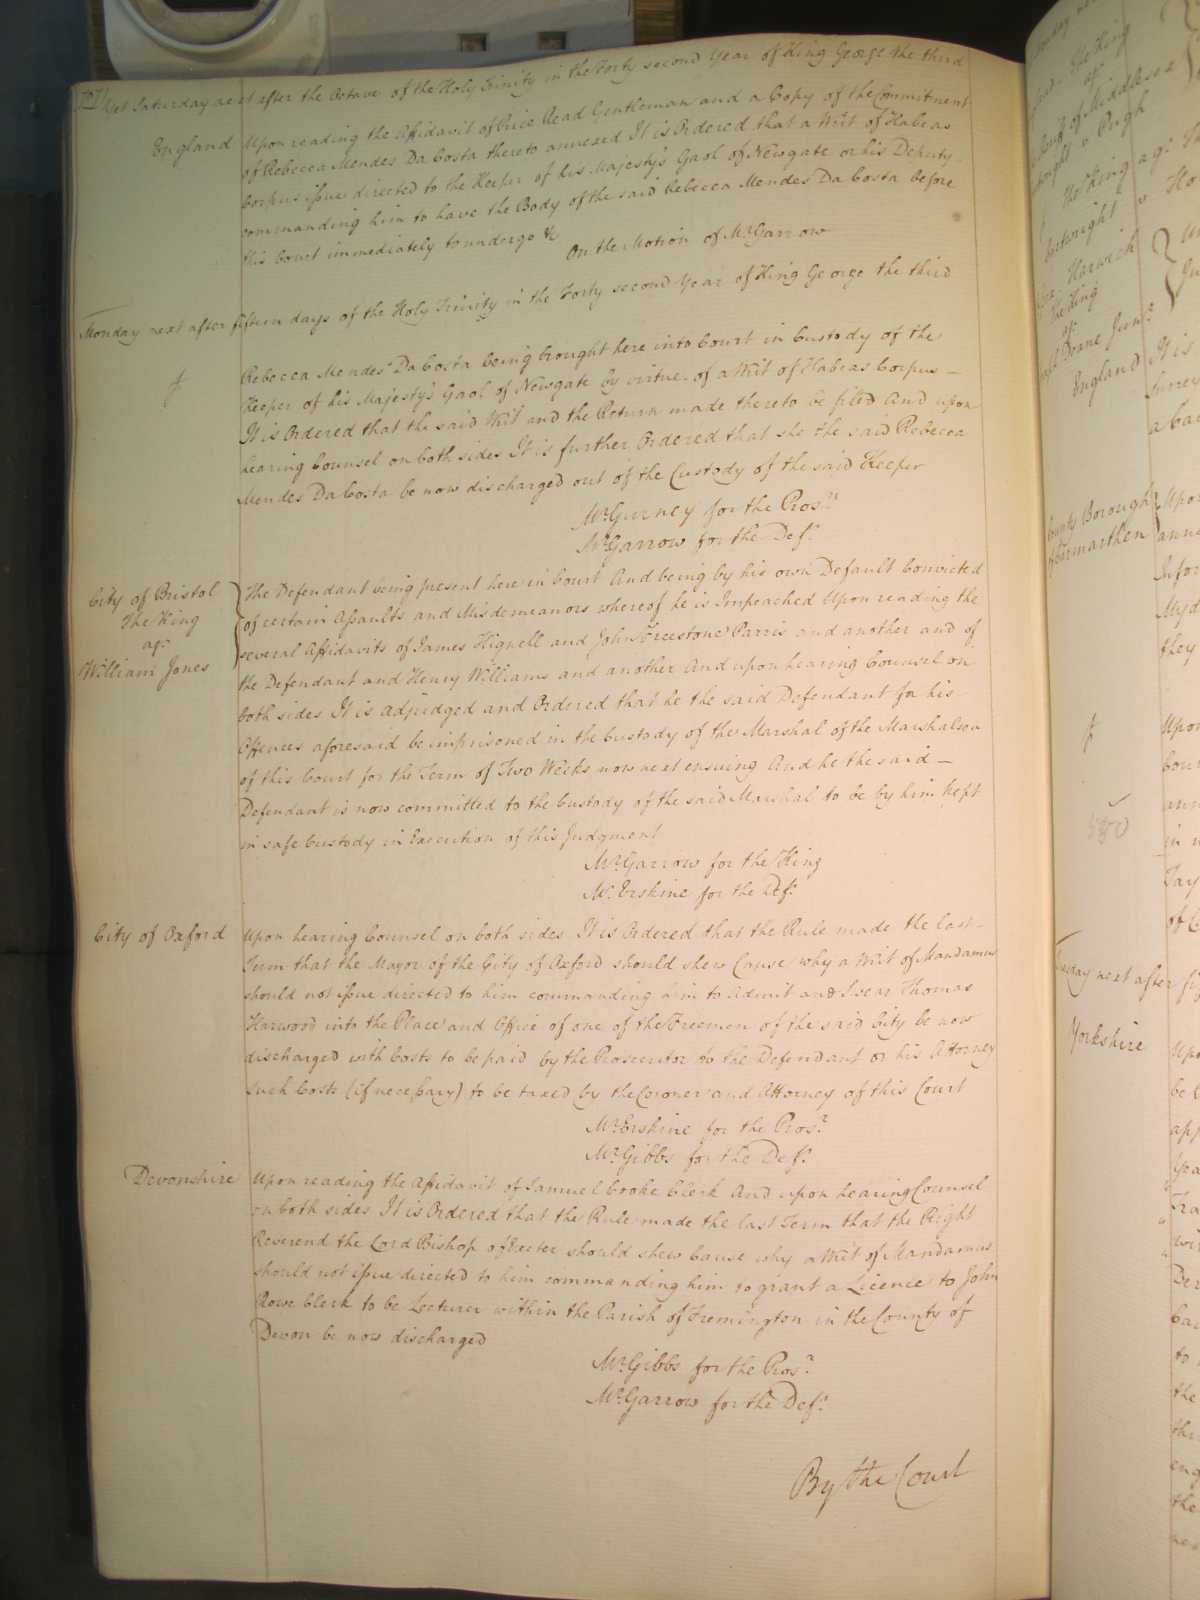 Yet Saturday next after the Octave of the Holy Trinity in the Forty second Year of King George the third
England
Upon reading the Affidavit of Price Read Gentleman and a Copy of the Commitment
of Rebecca Mendes Da Costa thereto annexed It is Ordered that a Writ of Habeas
Corpus issue directed to the Keeper of his Majesty's Gaol of Newgate or his Deputy
commanding him to have the Body of the said Rebecca Mendes Da Costa before
this Court immediately to undergo &c
On the Motion of Mr Garrow
Monday next after fifteen days of the Holy Trinity in the Forty second Year of King George the third
Rebecca Mendes Da Costa being brought here into Court in Custody of the
Keeper of his Majesty's Gaol of Newgate by virtue of a Writ of Habeas Corpus —
It is Ordered that the said Writ and the Return made thereto be filed And upon
hearing Counsel on both sides It is further Ordered that she the said Rebecca
Mendes Da Costa be now discharged out of the Custody of the said Keeper
Mr Gurney for the Prosn
Mr Garrow for the Deft
City of Bristol
The King
agt
William Jones
The Defendant being present here in Court And being by his own Default Convicted
of certain Assaults and Misdemeanors whereof he is Impeached Upon reading the
several Affidavits of James Hignell and John Freestone Parris and another and of
the Defendant and Henry Williams and another And upon hearing Counsel on
both sides It is adjudged and Ordered that he the said Defendant for his
Offences aforesaid be imprisoned in the Custody of the Marshal of the Marshalsea
of this Court for the Term of Two Weeks now next ensuing And he the said —
Defendant is now committed to the Custody of the said Marshal to be by him kept
in safe Custody in Execution of this Judgment
Mr Garrow for the King
Mr Erskine for the Deft
City of Oxford
Upon hearing Counsel on both sides It is Ordered that the Rule made the last
Term that the Mayor of the City of Oxford should shew Cause why a Writ of Mandamus
should not issue directed to him commanding him to Admit and Swear Thomas
Harwood into the Place and Office of one of the Freemen of the said City be now
discharged with Costs to be paid by the Prosecutor to the Defendant or his Attorney
such Costs (if necessary) to be taxed by the Coroner and Attorney of this Court
Mr Erskine for the Prosr
Mr Gibbs for the Deft
Devonshire
Upon reading the Affidavit of Samuel Cooke Clerk And upon hearing Counsel
on both sides It is Ordered that the Rule made the last Term that the Right
Reverend the Lord Bishop of Exeter should shew Cause why a Writ of Mandamus
should not issue directed to him commanding him to grant a Licence to John
Rowe Clerk to be Lecturer within the Parish of Fremington in the County of
Devon be now discharged
Mr Gibbs for the Prosr
Mr Garrow for the Deft
By the Court
The King
agt
of Middlesex
v Pugh
The King agt
Cartwright v
Harwich
The King
agt
Doane Junr
England
It is
Surrey
County Borough
of Carmarthen
Upon
they
Upon
500
of
Tuesday next after
Yorkshire
Upon
be
to
the
the